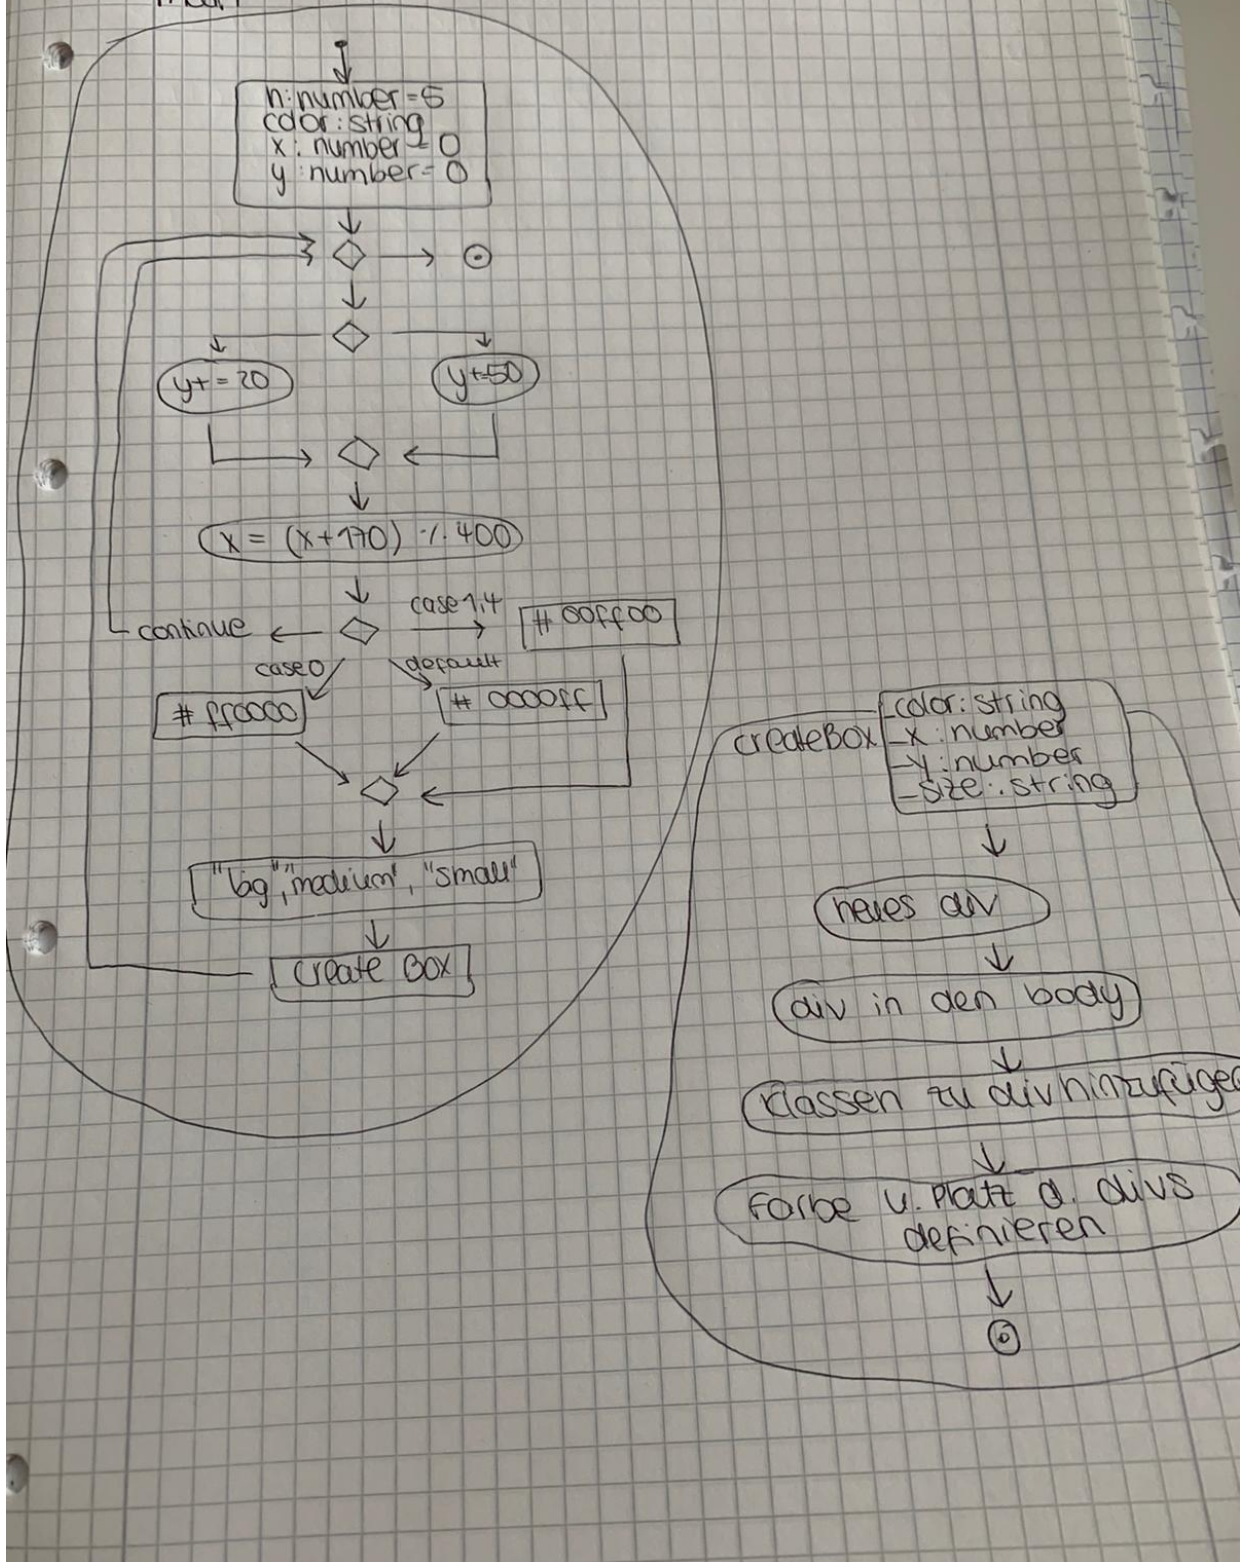 n:number=5
color:string
x: number=0
y:number=0
y+=20
y+=50
x = (x+170) % 400
continue
case1,4
#00ff00
case0
default
#ff0000
#0000ff
"big", "medium", "small"
create Box
createBox
_color:string
_x:number
_y:number
_size:string
neues div
div in den body
Klassen zu div hinzufügen
Farbe u. Platz d. divs
definieren